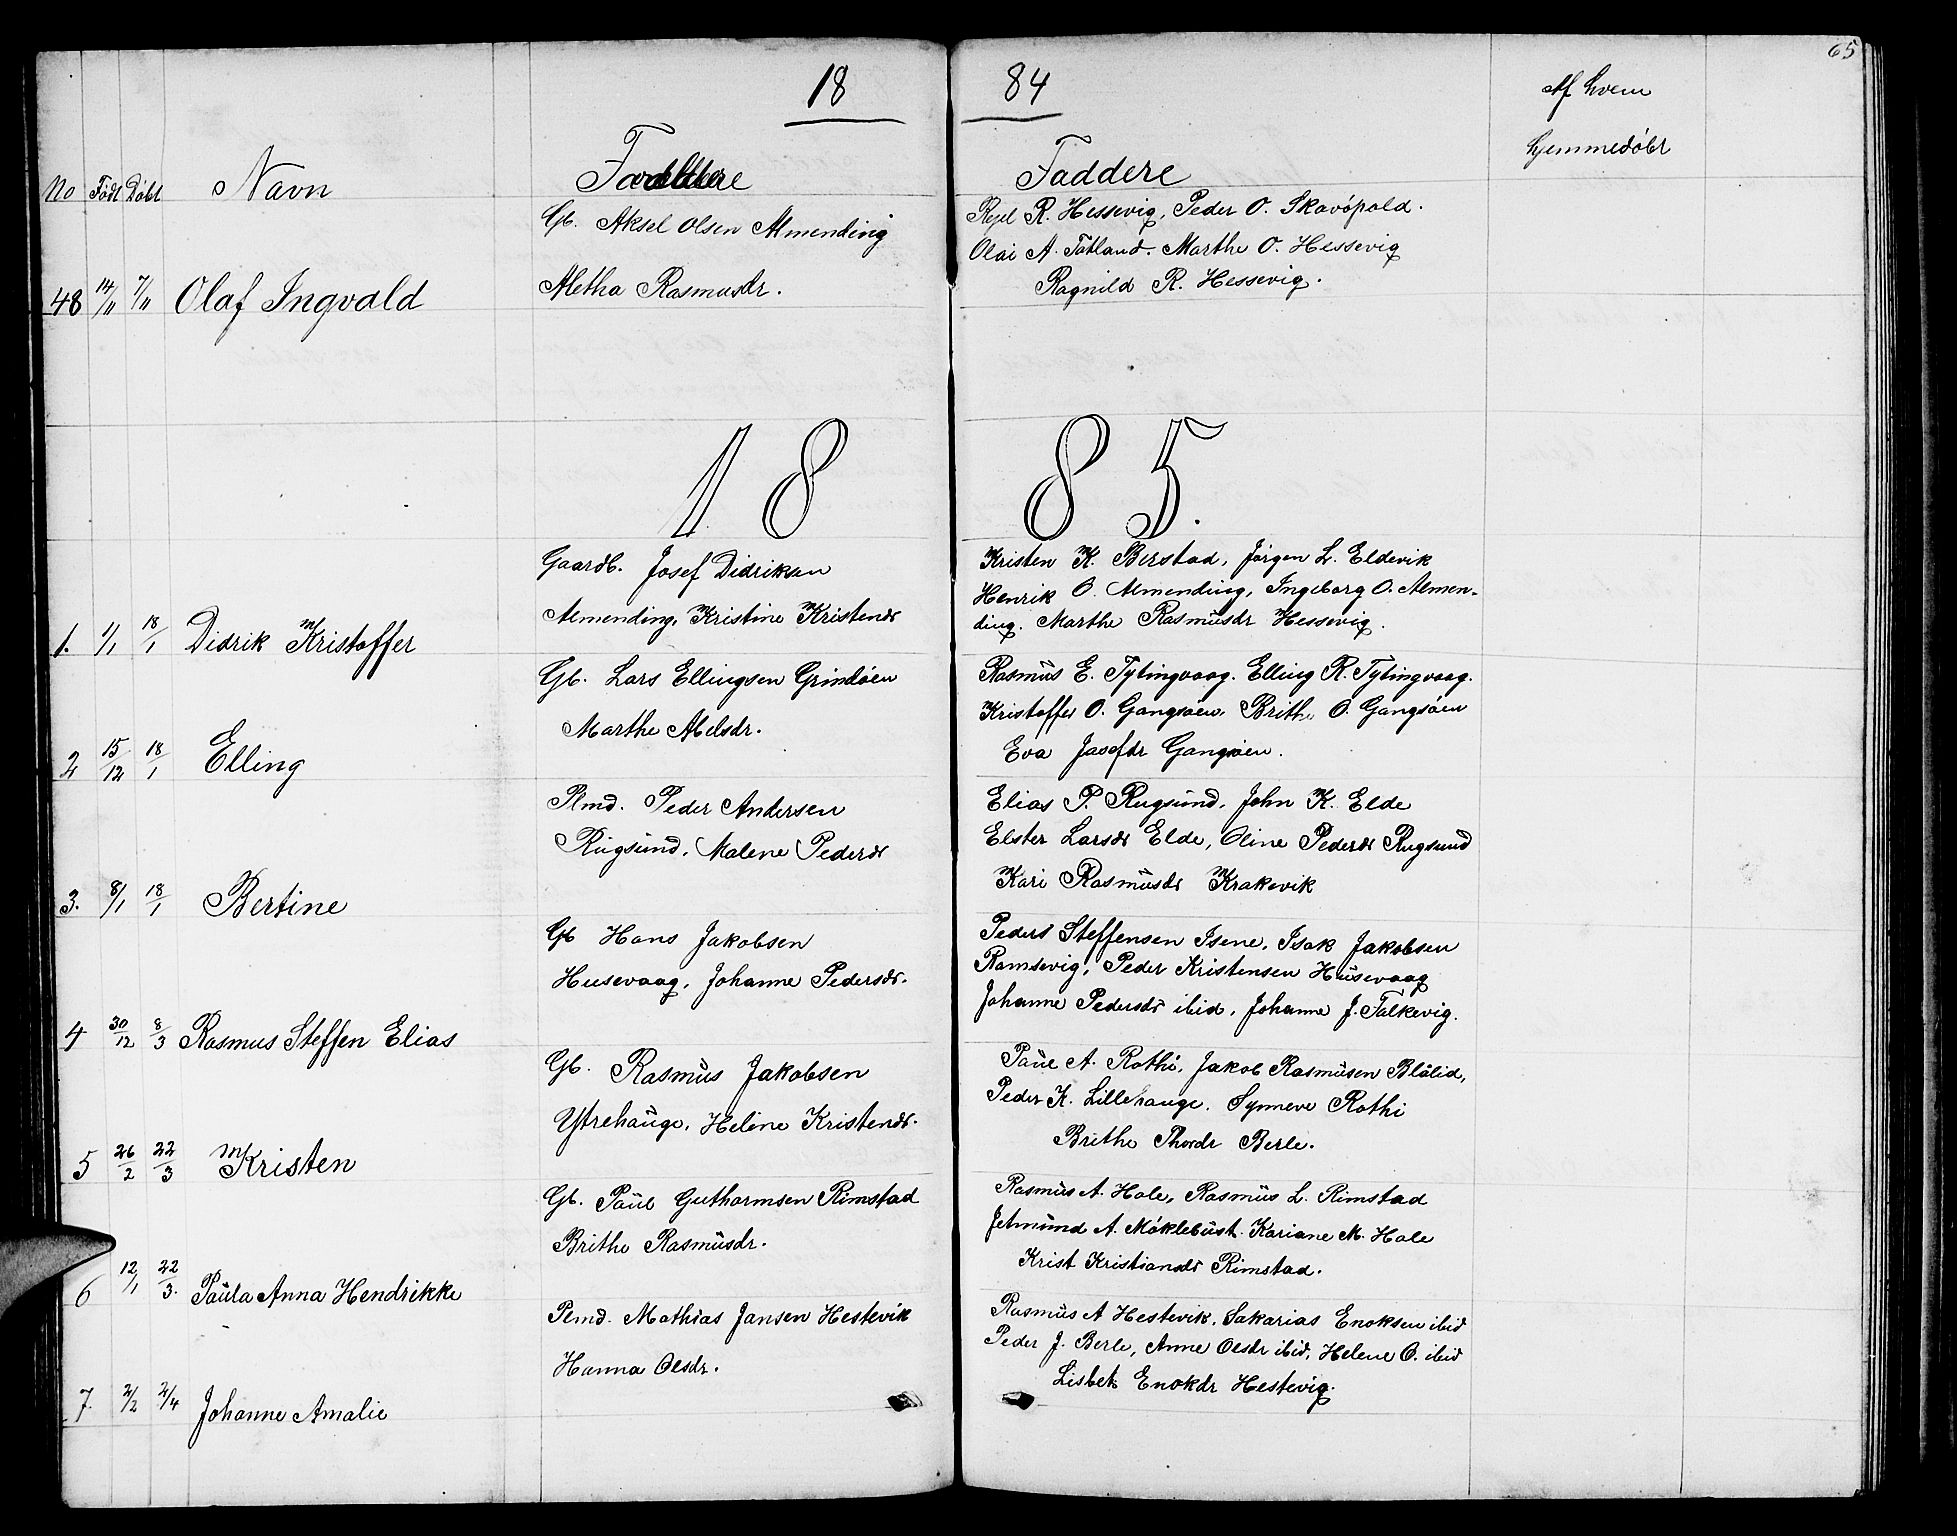 65
18 84
Af hvem
hjemmedøbt
No Født Døbt Navn Forældre Faddere
Gb. Aksel Olsen Almending
Metha Rasmusdr.
R. Hessevig, Peder O. Skavøpold.
Olai A. Totland. Marthe O. Hessevig
Ragnild R. Hessevig.
48 14/11 7/11 Olaf Ingvald
18 85.
Gaardb. Josef Didriksen
Almending, Kristine Kristensdr
Kristen K. Berstad, Jørgen L. Eldevik
Henrik O. Almending, Ingeborg O. Almen-
ding. Marthe Rasmusdr Hessevig.
1. 1/1 18/1 Didrik Kristoffer
Gb. Lars Ellingsen Grindøen
Marthe Abelsdr.
Rasmus E. Tytingvaag. Elling R. Tytingvaag.
Kristoffer O. Gangsøen, Brithe O. Gangsøen
Eva Josefdr Gangsøen.
2 15/12 18/1 Elling
Plmd. Peder Andersen
Rugsund, Malene Pedersdr
Elias P. Rugsund, John K. Elde
Elster Larsdr Elde, Oline Pedersdr Rugsund
Kari Rasmusdr Krakevik
3. 8/1 18/1 Bertine
Gb Hans Jakobsen
Husevaag, Johanne Pedersdr.
Peders Steffensen Isene, Isak Jakobsen
Ramsevig, Peder Kristensen Husevaag
Johanne Pedersdr ibid, Johanne J. Falkevig.
4 30/12 8/3 Rasmus Steffen Elias
Gb. Rasmus Jakobsen
Ytrehauge, Heline Kristensdr.
Paul A. Rothi, Jakob Rasmusen Blålid,
Peder K. Lillehauge. Synneve Rothi
Brithe Thordr Berle.
5 26/2 22/3 Kristen
Gb. Paul Guthormsen Rimstad
Brithe Rasmusdr.
Rasmus A. Hole, Rasmus L. Rimstad
Jetmund A. Møklebust. Kariane M. Hole
Krist Kristiansdr Rimstad.
6 12/1 22/3. Paula Anna Hendrikke
Plmd. Mathias Jansen Hestevik
Hanna Olsdr.
Rasmus A Hestevik, Sakarias Enoksen ibid
Peder J. Berle, Anne Olsdr ibid, Helene O. ibid
Lisbet Enokdr Hestevig.
7. 2/2 2/4 Johanne Amalie